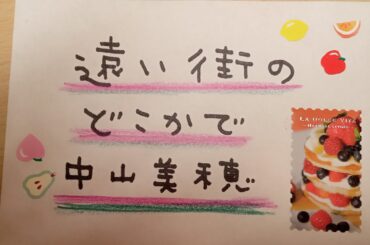 遠い街の
どこかで
中山美穂
LA DOLCE VITA